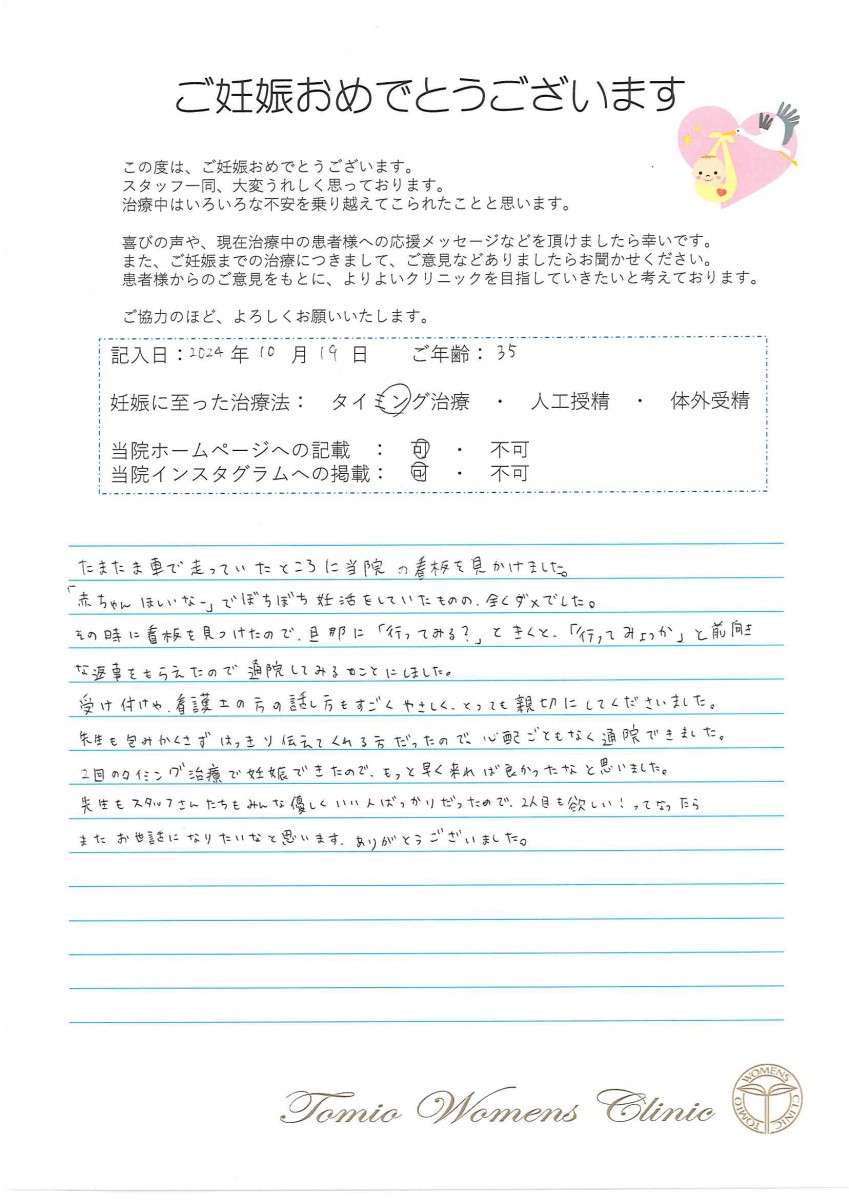 ご妊娠おめでとうございます
この度は、ご妊娠おめでとうございます。
スタッフ一同、大変うれしく思っております。
治療中はいろいろな不安を乗り越えてこられたことと思います。
喜びの声や、現在治療中の患者様への応援メッセージなどを頂けましたら幸いです。
また、ご妊娠までの治療につきまして、ご意見などありましたらお聞かせください。
患者様からのご意見をもとに、よりよいクリニックを目指していきたいと考えております。
ご協力のほど、よろしくお願いいたします。
記入日：2024年10月19日 ご年齢：35
妊娠に至った治療法： タイミング治療 ・ 人工授精 ・ 体外受精
当院ホームページへの記載 ： 可 ・ 不可
当院インスタグラムへの掲載： 可 ・ 不可
たまたま車で走っていたところに当院の看板を見かけました。
「赤ちゃんほしいなー」でぼちぼち妊活をしていたものの、全くダメでした。
その時に看板を見つけたので、旦那に「行ってみる？」ときくと、「行ってみよっか」と前向き
な返事をもらえたので通院してみることにしました。
受け付けや、看護士の方の話し方もすごくやさしく、とっても親切にしてくださいました。
先生も包みかくさずはっきり伝えてくれる方だったので、心配ごともなく通院できました。
2回のタイミング治療で妊娠できたので、もっと早く来れば良かったなと思いました。
先生もスタッフさんたちもみんな優しくいい人ばっかりだったので、2人目も欲しい！ってなったら
またお世話になりたいなと思います。ありがとうございました。
Tomio Womens Clinic
TOMIO WOMENS CLINIC